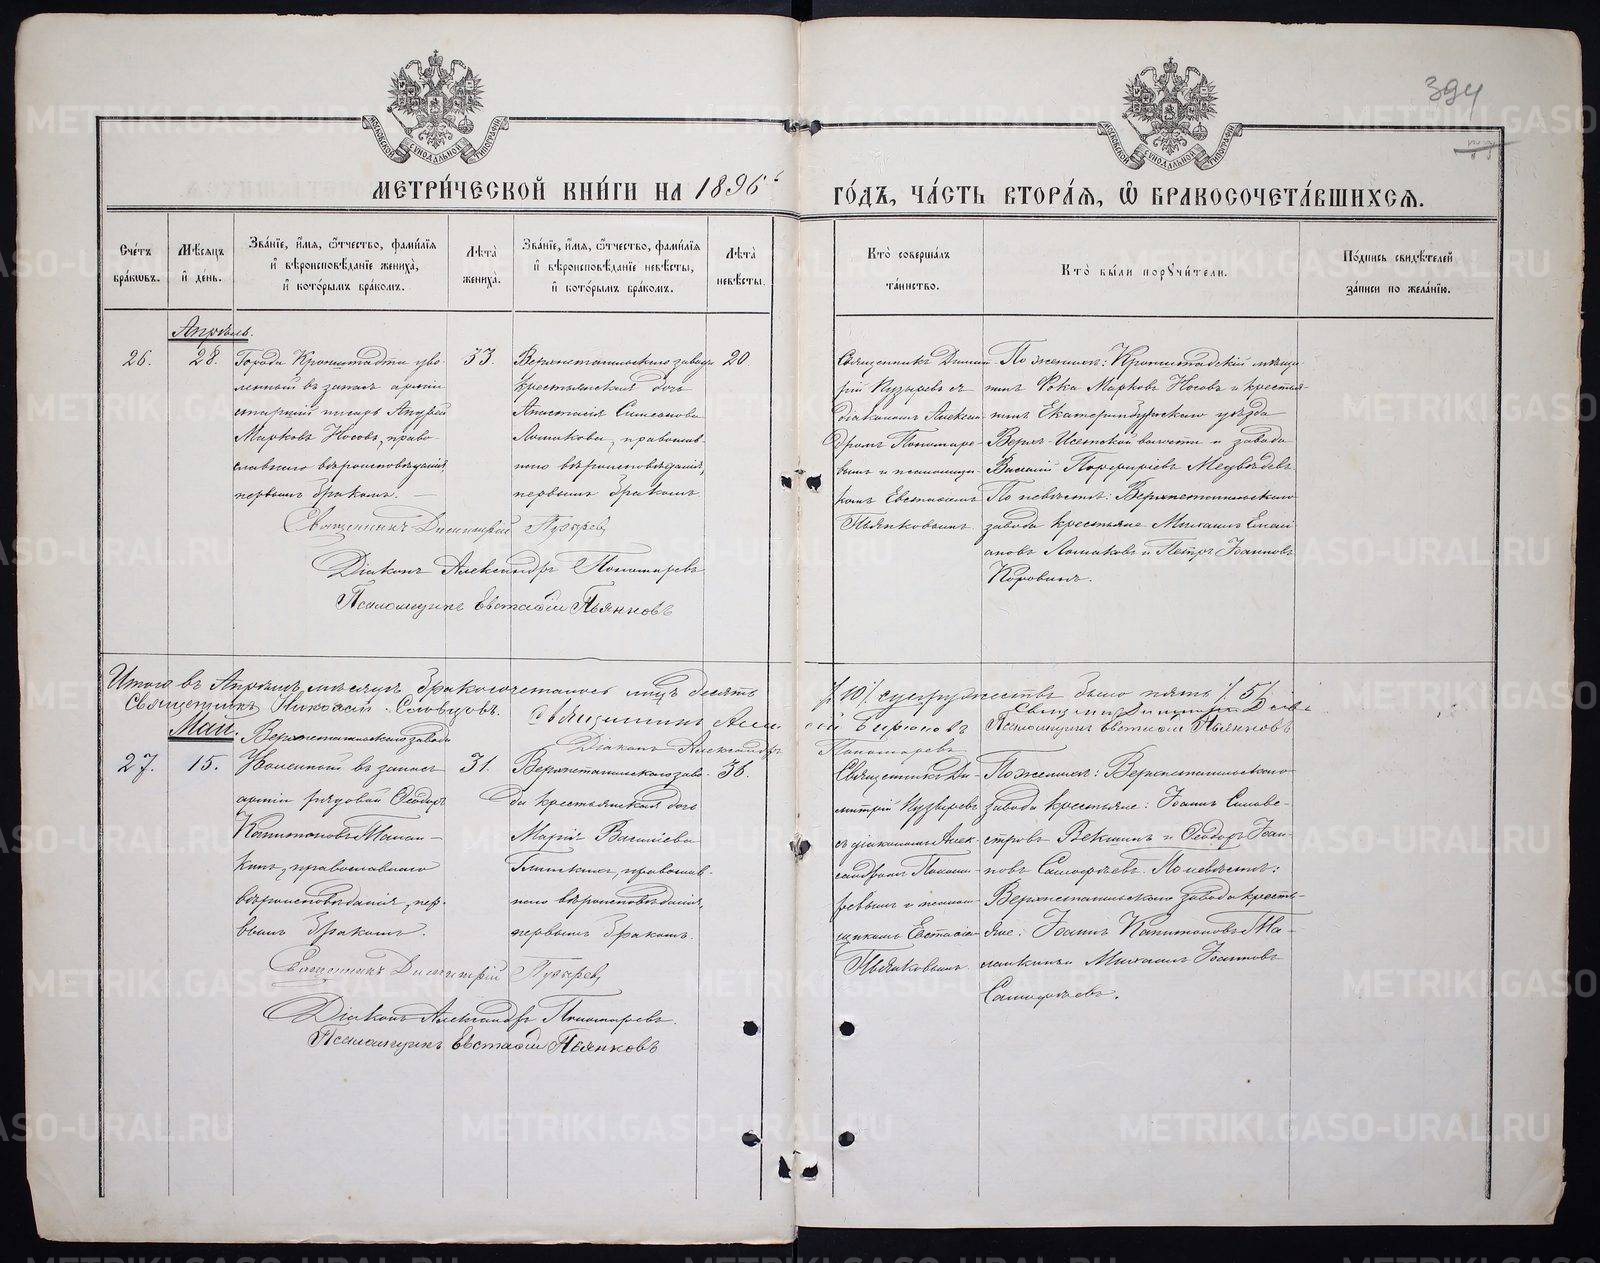 394
МОСКОВСКОЙ СѴНОДАЛЬНОЙ ТИПОГРАФІИ
МОСКОВСКОЙ СѴНОДАЛЬНОЙ ТИПОГРАФІИ
МЕТРИ́ЧЕСКОЙ КНИ́ГИ НА 1896 й ГО́ДЪ, ЧА́СТЬ ВТОРА́Я, Ѽ БРАКОСОЧЕТА́ВШИХСЯ.
Сче́тъ бра́кѡвъ.
Мѣ́сяцъ и҆ де́нь.
Зва́нїе, и҆́мѧ, ѻ҆́тчество, фами́лїѧ и҆ вѣроисповѣ́данїе жениха̀, и҆ кото́рымъ бра́комъ.
Лѣ́та жениха̀.
Зва́нїе, и҆́мѧ, ѻ҆́тчество, фами́лїѧ и҆ вѣроисповѣ́данїе невѣ́сты, и҆ кото́рымъ бра́комъ.
Лѣ́та невѣ́сты.
Кто̀ соверша́лъ та́инство.
Кто̀ бы́ли порꙋчи́тели.
По́дпись свидѣ́телей за́писи по жела́нїю.
Апрѣль.
26.
28.
Города Кронштадта уво-
ленный въ запасъ арміи
старшій писарь Андрей
Марковъ Носовъ, право-
славнаго вѣроисповѣданія,
первымъ бракомъ.
33.
Верхнетагильскаго завода
крестьянская дочь
Анастасія Симеонова
Ломакова, православ-
наго вѣроисповѣданія,
первымъ бракомъ
20
Священникъ Дими-
трій Пузыревъ съ
діакономъ Алекса-
ндромъ Пономаре-
вымъ и псаломщи-
комъ Евстафіемъ
Пьянковымъ.
По женихѣ: Кронштадскій мѣща-
нинъ Фока Марковъ Носовъ и крестья-
нинъ Екатеринбургскаго уѣзда
Верхъ-Исетской волости и завода
Василій Порфиріевъ Медвѣдевъ
По невѣстѣ: Верхнетагильскаго
завода крестьяне Михаилъ Емелі
ановъ Ломаковъ и Петръ Іоанновъ
Коровинъ.
Священникъ Димитрій Пузырев
Діаконъ Александръ Пономаревъ
Псаломщикъ Евстафій Пьянковъ
Итого въ Апрѣлѣ мѣсяцѣ бракосочеталось лицъ десять /10/ супружествъ было пять /5/
Священникъ Николай Словцовъ. Священникъ
Діаконъ Александръ Пономаревъ
Псаломщикъ Евстафій Пьянковъ
Май.
27.
15.
Верхнетагильскаго завода
Уволенный въ запасъ
арміи рядовой Ѳеодоръ
Капитоновъ Малан-
кинъ, православнаго
вѣроисповѣданія, пер-
вымъ бракомъ.
31.
Верхнетагильскаго заво-
да крестьянская дочь
Марія Василіева
православ-
наго вѣроисповѣданія,
первымъ бракомъ.
36.
Священникъ Ди-
митрій Пузыревъ
съ діакономъ Алек-
сандромъ Понома-
ревымъ и псалом-
щикомъ Евстафіем
Пьянковымъ.
По женихѣ: Верхнетагильскаго
завода крестьяне: Іоаннъ Силове-
стровъ Векшинъ и Ѳеодоръ Іоан-
новъ Самофѣевъ. По невѣстѣ:
Верхнетагильскаго завода кресть-
яне: Іоаннъ Капитоновъ Ма-
ланкинъ и Михаилъ Іоанновъ
Самофѣевъ.
Священникъ Димитрій Пузырев
Діаконъ Александръ Пономаревъ.
Псаломщикъ Евстафій Пьянковъ
METRIKI.GASO-URAL.RU